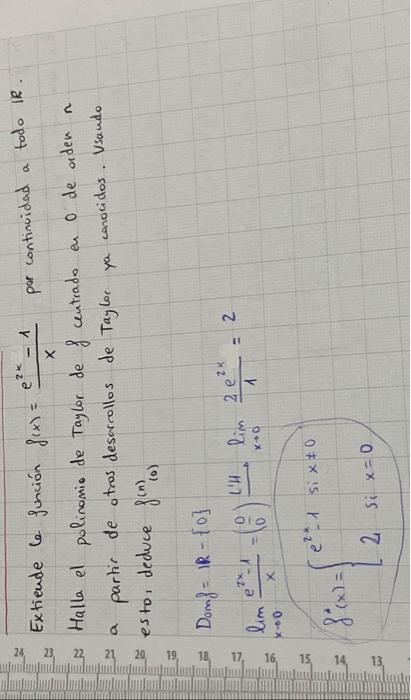 Extiende la función f(x) = (e^{2x} - 1)/x por continuidad a todo IR.
Halla el polinomio de Taylor de f centrado en 0 de orden n
a partir de otros desarrollos de Taylor ya conocidos. Usando
esto, deduce f^{(n)}(0)
Dom f = IR - {0}
lim_{x→0} (e^{2x} - 1)/x = (0/0) L'H→ lim_{x→0} 2e^{2x}/1 = 2
f*(x) = { e^{2x} - 1 si x ≠ 0
2 si x = 0
24 23 22 21 20 19 18 17 16 15 14 13